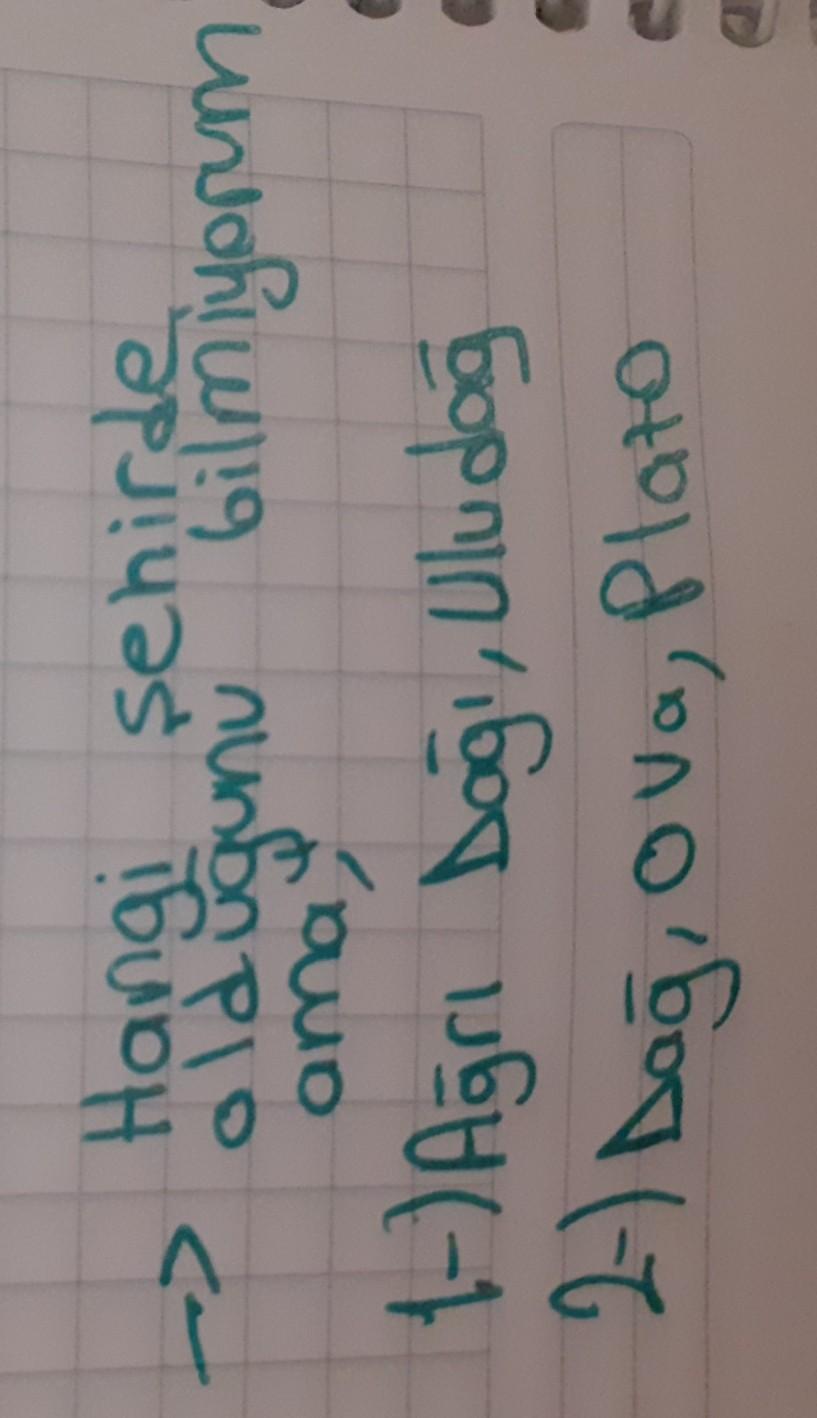 → Hangi şehirde
olduğunu bilmiyorum
ama,
1-) Ağrı Dağı, Uludağ
2-) Dağ, Ova, Plato